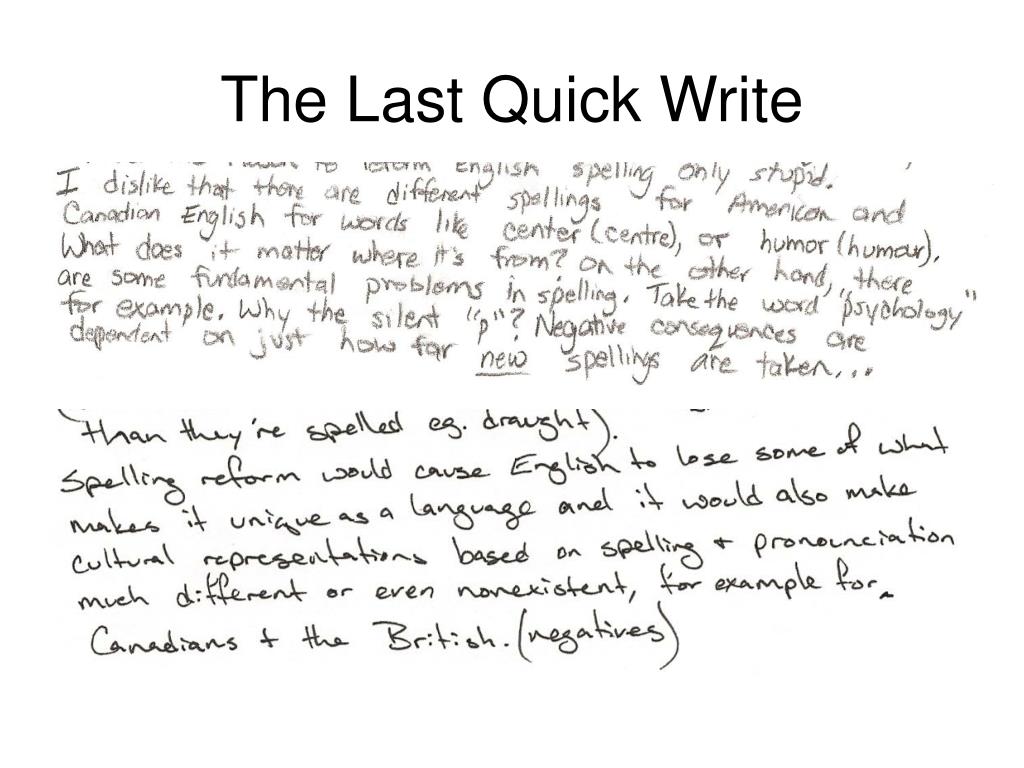 The Last Quick Write
to reform English spelling only stupid.
I dislike that there are different spellings for American and
Canadian English for words like center (centre), or humor (humour).
What does it matter where it's from? On the other hand, there
are some fundamental problems in spelling. Take the word "psychology"
for example. Why the silent "p"? Negative consequences are
dependent on just how far new spellings are taken...
than they're spelled eg. draught).
Spelling reform would cause English to lose some of what
makes it unique as a language and it would also make
cultural representations based on spelling + pronounciation
much different or even nonexistent, for example for
Canadians + the British. (negatives)